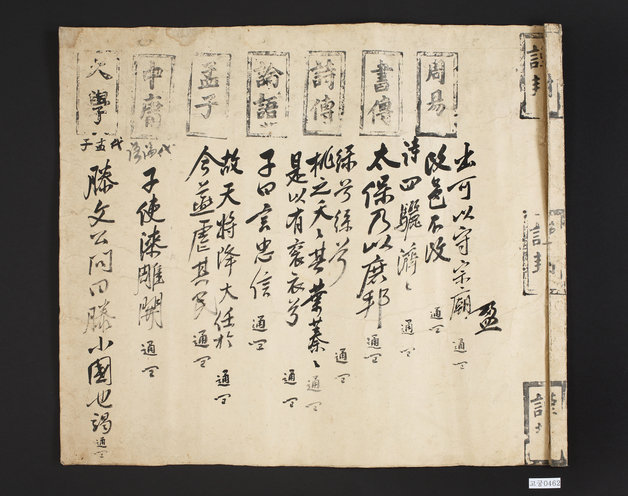 周易
書傳
詩傳
論語
孟子
中庸
大學
盈
出可以守宗廟 通
改邑不改 通
詩四驪濟〻 通
太保乃以庶邦 通
綠兮綠兮 通
桃之夭〻其葉蓁〻 通
是以有袞衣兮 通
子曰言忠信 通
故天將降大任於 通
今燕虐其民 通
代論語
子使漆雕開 通
代孟子
滕文公問曰滕小國也竭 通
고궁0462